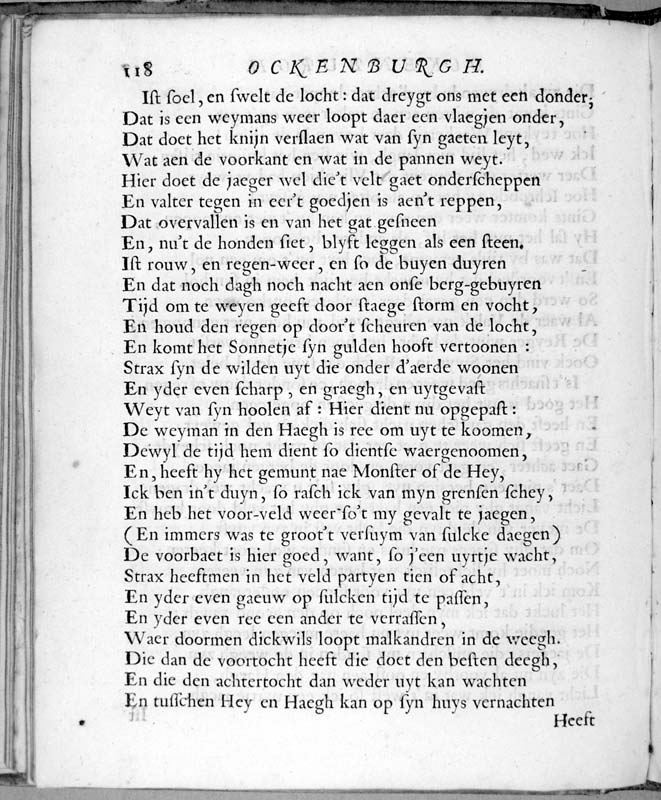 118 OCKENBURGH.
Iſt ſoel, en ſwelt de locht: dat dreygt ons met een donder;
Dat is een weymans weer loopt daer een vlaegjen onder,
Dat doet het knijn verſlaen wat van ſyn gaeten leyt,
Wat aen de voorkant en wat in de pannen weyt.
Hier doet de jaeger wel die't velt gaet onderſcheppen
En valter tegen in eer't goedjen is aen't reppen,
Dat overvallen is en van het gat geſneen
En, nu't de honden ſiet, blyft leggen als een ſteen.
Iſt rouw, en regen-weer, en ſo de buyen duyren
En dat noch dagh noch nacht aen onſe berg-gebuyren
Tijd om te weyen geeft door ſtaege ſtorm en vocht,
En houd den regen op door't ſcheuren van de locht,
En komt het Sonnetje ſyn gulden hooft vertoonen :
Strax ſyn de wilden uyt die onder d'aerde woonen
En yder even ſcharp, en graegh, en uytgevaſt
Weyt van ſyn hoolen af: Hier dient nu opgepaſt:
De weyman in den Haegh is ree om uyt te koomen,
Dewyl de tijd hem dient ſo dientſe waergenoomen,
En, heeft hy het gemunt nae Monſter of de Hey,
Ick ben in't duyn, ſo raſch ick van myn grenſen ſchey,
En heb het voor-veld weer ſo't my gevalt te jaegen,
(En immers was te groot't verſuym van ſulcke daegen)
De voorbaet is hier goed, want, ſo j'een uyrtje wacht,
Strax heeftmen in het veld partyen tien of acht,
En yder even gaeuw op ſulcken tijd te paſſen,
En yder even ree een ander te verraſſen,
Waer doormen dickwils loopt malkandren in de weegh.
Die dan de voortocht heeft die doet den beſten deegh,
En die den achtertocht dan weder uyt kan wachten
En tuſſchen Hey en Haegh kan op ſyn huys vernachten
Heeft